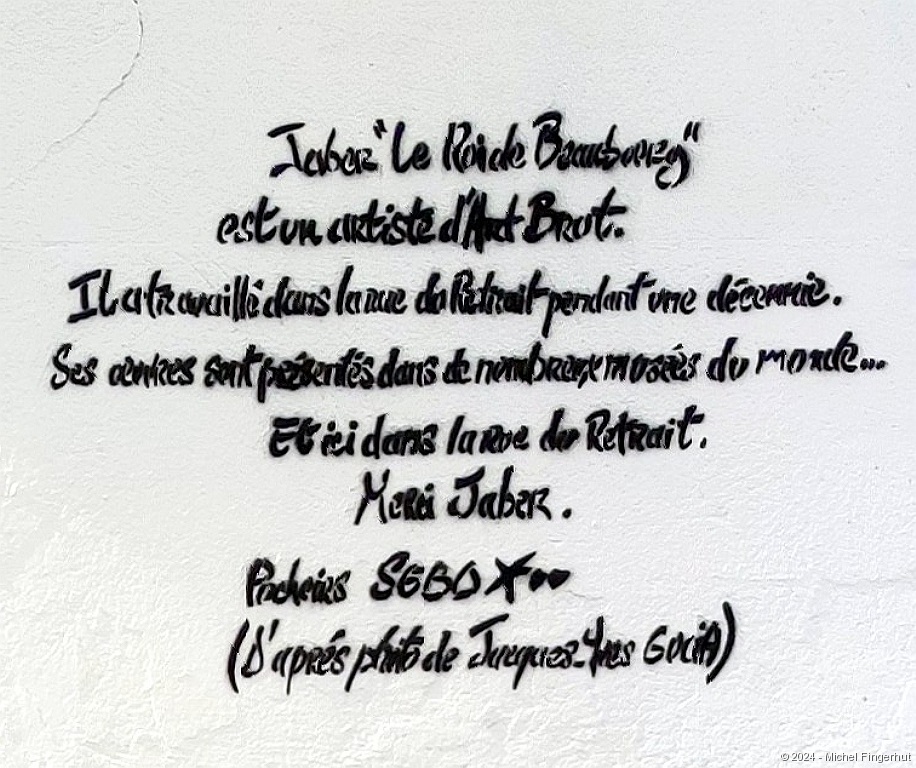 Jaber "Le Roi de Beaubourg"
est un artiste d'Art Brut.
Il a travaillé dans la rue du Retrait pendant une décennie.
Ses œuvres sont présentés dans de nombreux musées du monde...
Et ici dans la rue du Retrait.
Merci Jaber.
Pochoirs SEBO
(D'après photo de Jacques-Yves Gucia)
© 2024 - Michel Fingerhut